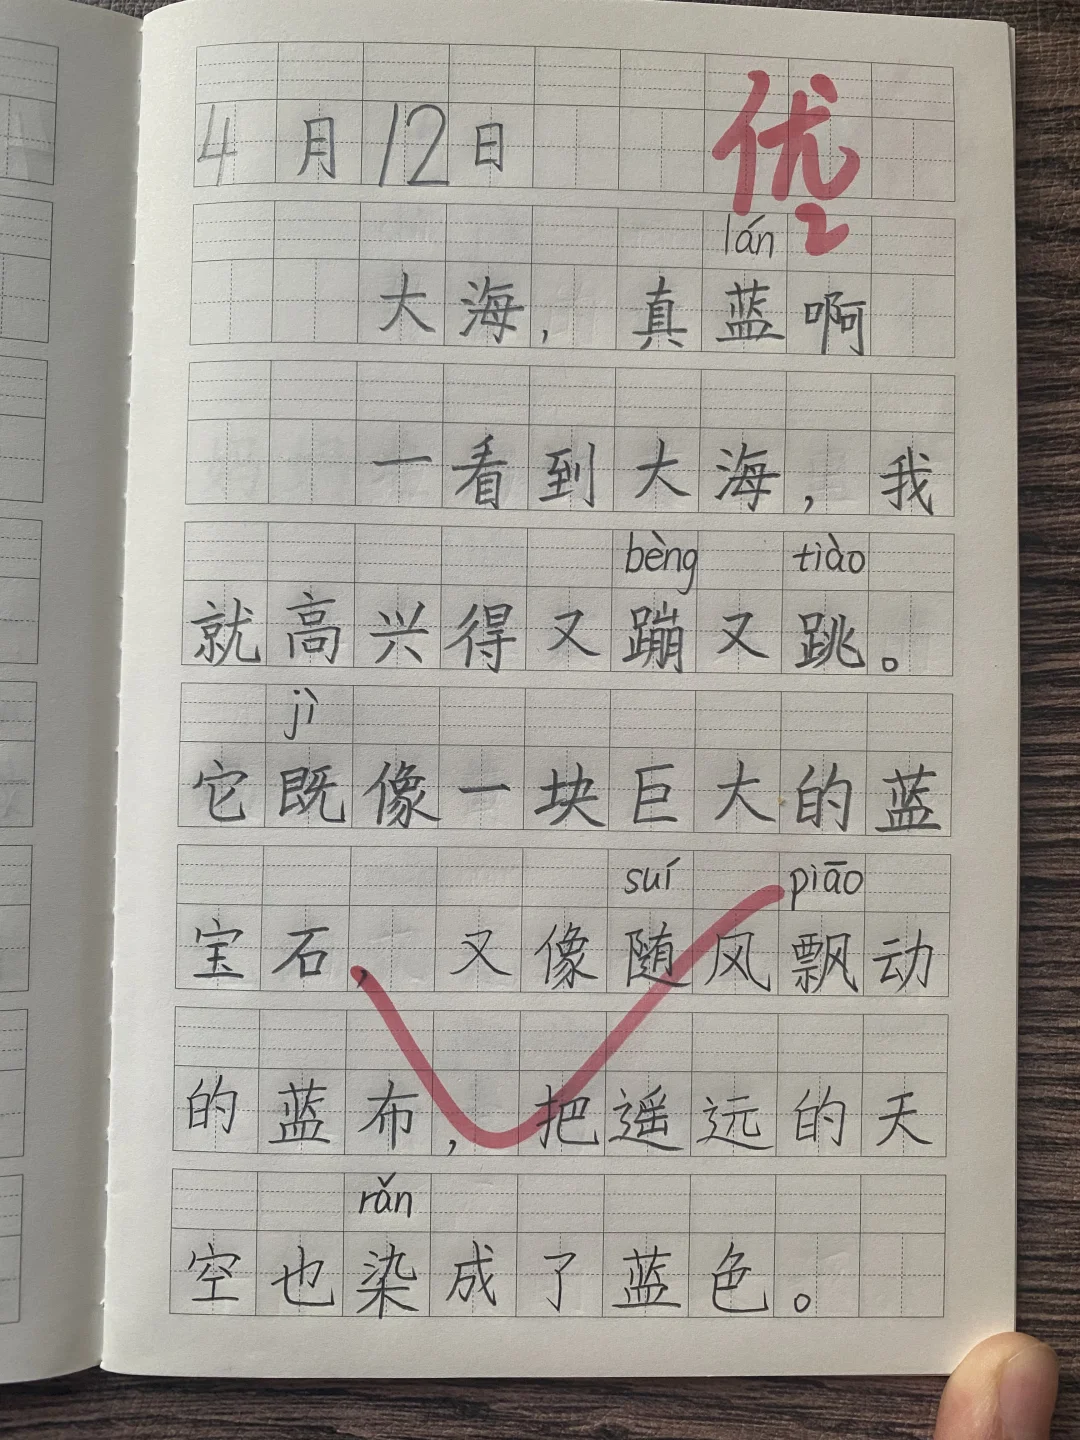 4月12日 优2
lán
大海，真蓝啊
一看到大海，我
bèng tiào
就高兴得又蹦又跳。
jì
它既像一块巨大的蓝
suí piāo
宝石，又像随风飘动
的蓝布，把遥远的天
rǎn
空也染成了蓝色。